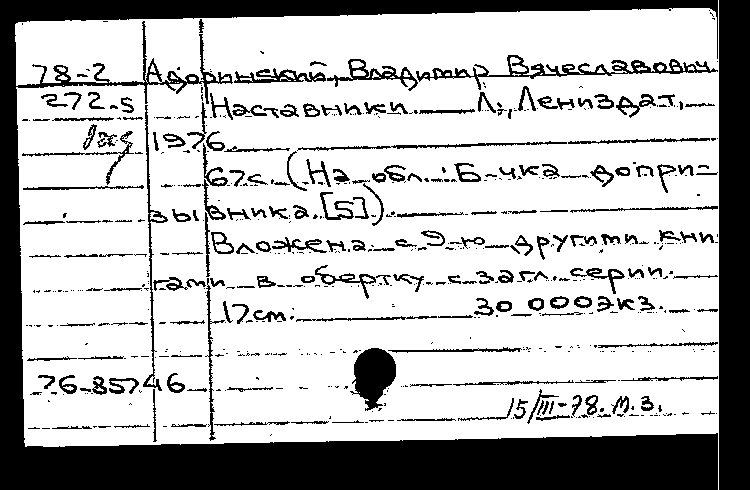 78-2 Адоринский, Владимир Вячеславович.
272.5 Наставники. Л., Лениздат,
1976.
67с. (На обл.: Б-чка допри-
зывника. [5]).
Вложена с 9-ю другими кни-
гами в обертку с загл. серии.
17см. 30 000экз.
76-85746
15/III-78. М.З.